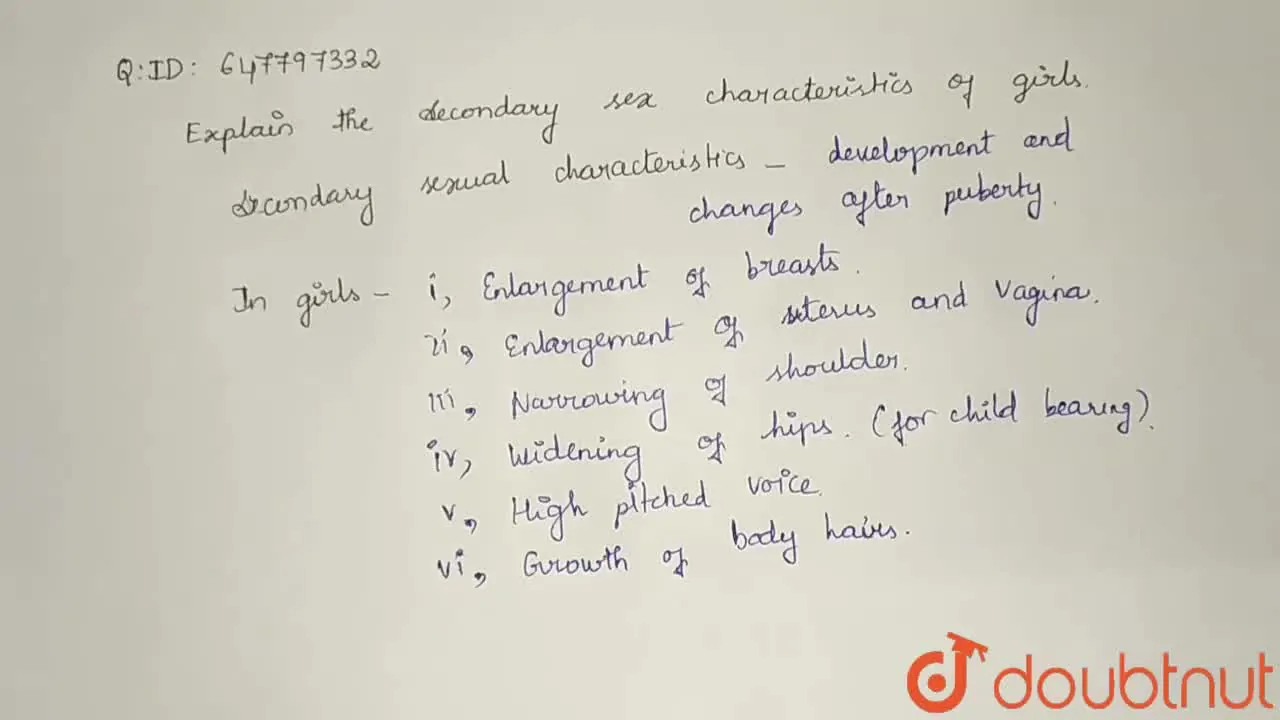 Q:ID: 647797332
Explain the secondary sex characteristics of girls.
Secondary sexual characteristics - development and
changes after puberty.
In girls - i, Enlargement of breasts.
ii, Enlargement of uterus and vagina.
iii, Narrowing of shoulder.
iv, Widening of hips. (for child bearing).
v, High pitched voice.
vi, Growth of body hairs.
doubtnut